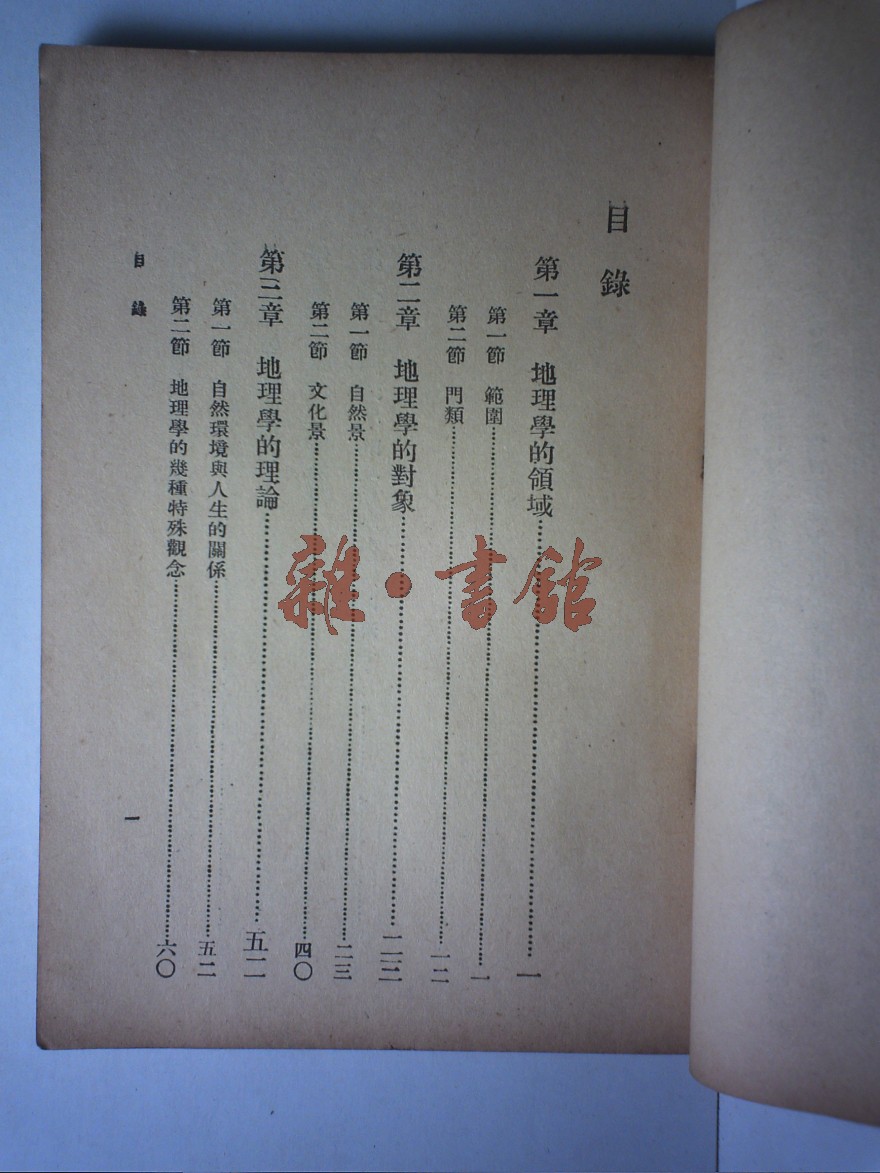 目錄
第一章 地理學的領域……一
第一節 範圍……一
第二節 門類……一二
第二章 地理學的對象……二三
第一節 自然景……二三
第二節 文化景……四〇
第三章 地理學的理論……五二
第一節 自然環境與人生的關係……五二
第二節 地理學的幾種特殊觀念……六〇
目錄
一
雜·書館